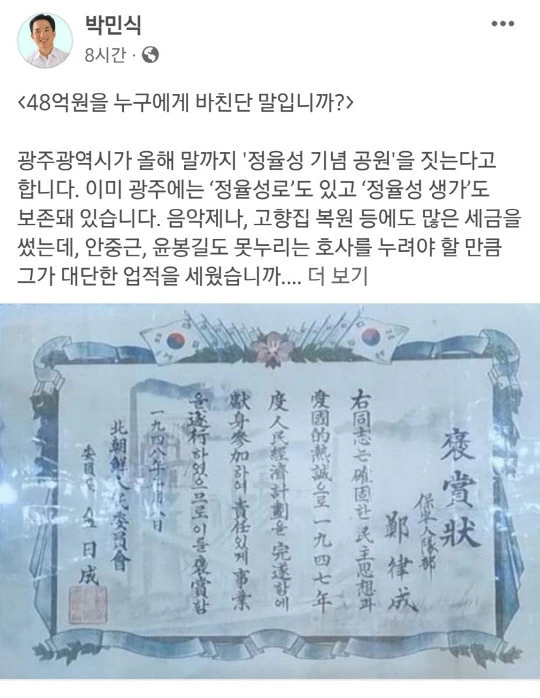 박민식
8시간
<48억원을 누구에게 바친단 말입니까?>
광주광역시가 올해 말까지 '정율성 기념 공원'을 짓는다고
합니다. 이미 광주에는 '정율성로'도 있고 '정율성 생가'도
보존돼 있습니다. 음악제나, 고향집 복원 등에도 많은 세금을
썼는데, 안중근, 윤봉길도 못누리는 호사를 누려야 할 만큼
그가 대단한 업적을 세웠습니까.... 더 보기
褒賞狀
保安隊部
鄭律成
右同志는 確固한 民主思想과
愛國的熱誠으로 一九四七年
度人民經濟計劃을 完遂함에
献身參加하여 責任있게 事業
을 遂行하였으므로 이를 褒賞함
一九四八年 月 日
北朝鮮人民委員會
委員長 金日成